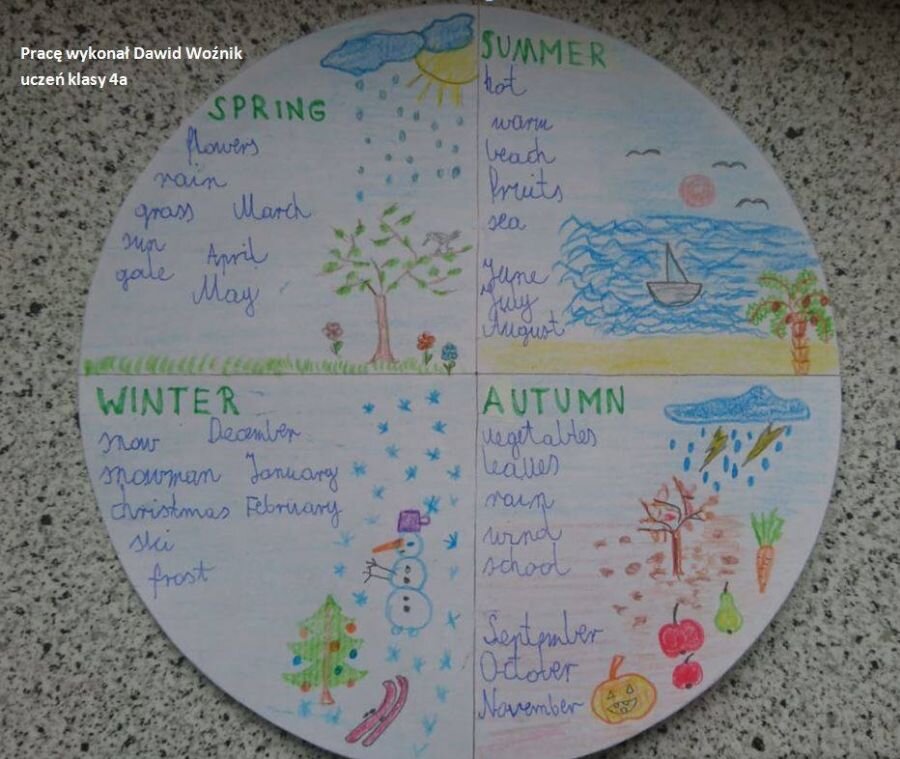 Pracę wykonał Dawid Woźnik
uczeń klasy 4a
SPRING
flowers
rain
grass March
sun
April
gale
May
SUMMER
hot
warm
beach
fruits
sea
June
July
August
WINTER
snow December
snowman January
christmas February
ski
frost
AUTUMN
vegetables
leaves
rain
wind
school
September
October
November